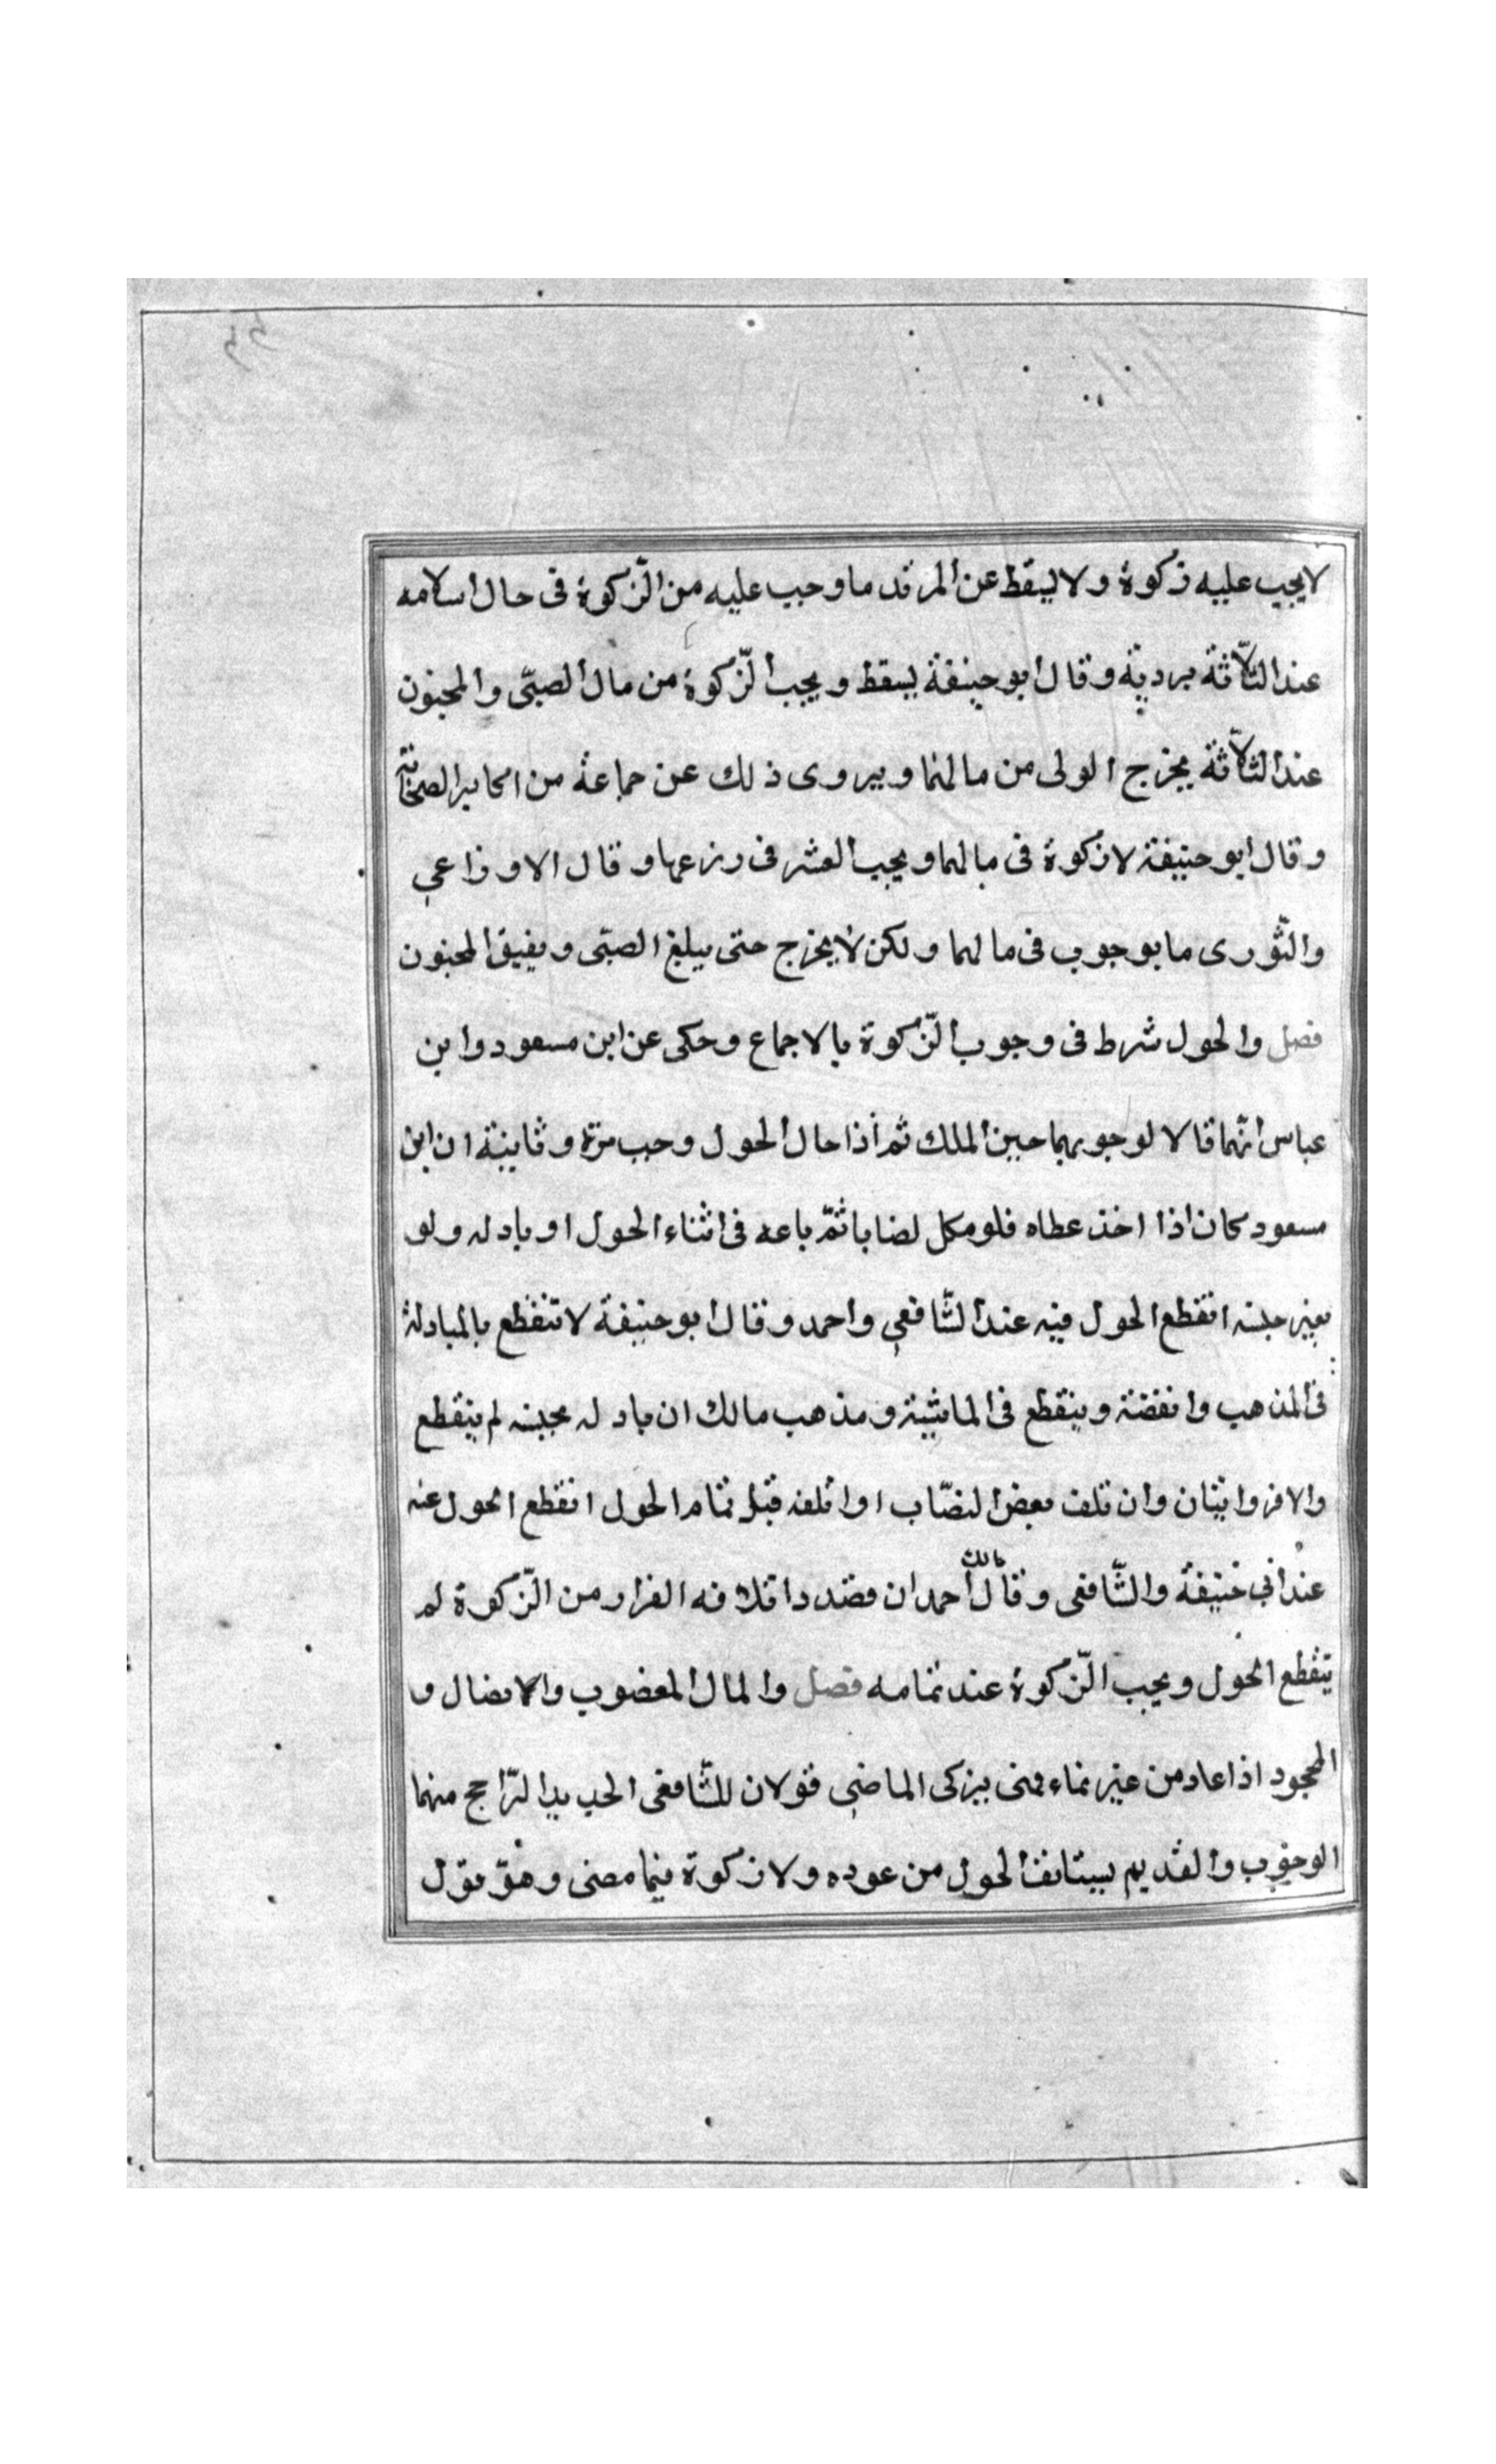 لا يجب عليه زكوة ولا يسقط عن المرتد ما وجب عليه من الزّكوة فى حال اسلامه
عند الثلّاثة بردته وقال ابو حنيفة يسقط ويجب الزّكوة من مال الصبّى والمجنون
عند الثلّاثة يخرج الولى من مالهما ويروى ذلك عن جماعة من اكابر الصحابة
وقال ابو حنيفة لا زكوة فى مالهما ويجب العشر فى زرعهما وقال الاوزاعى
والثّورى ما بوجوب فى مالهما ولكن لا يخرج حتى يبلغ الصبّى ويفيق المجنون
فصل والحول شرط فى وجوب الزّكوة بالاجماع وحكى عن ابن مسعود وابن
عباس انّهما قالا لوجوبهما حين الملك ثم اذا حال الحول وجب مرّة وثانية ان ابن
مسعود كان اذا اخذ عطاه فلو مكل نصابا ثمّ باعه فى اثناء الحول او بادله ولو
بغير جنسه انقطع الحول فيه عند الشّافعى واحمد وقال ابو حنيفة لا تنقطع بالمبادلة
فى المذهب وانفضة وينقطع فى الماشية ومذهب مالك ان بادله بجنسه لم ينقطع
والا فروايتان وان تلف بعض النصّاب او اتلفه قبل تمام الحول انقطع الحول عنه
عند ابى حنيفة والشّافعى وقال مالك احمد ان قصد داتلافه الفرار من الزّكوة لم
ينقطع الحول ويجب الزّكوة عند تمامه فصل والمال المغضوب والاضال و
المجود اذا عاد من غير نماء فمنى يزكى الماضى قولان للشّافعى الجديد الرّاجح منهما
الوجوب والقديم يستانف الحول من عوده ولا زكوة فيما مضى وهو قول